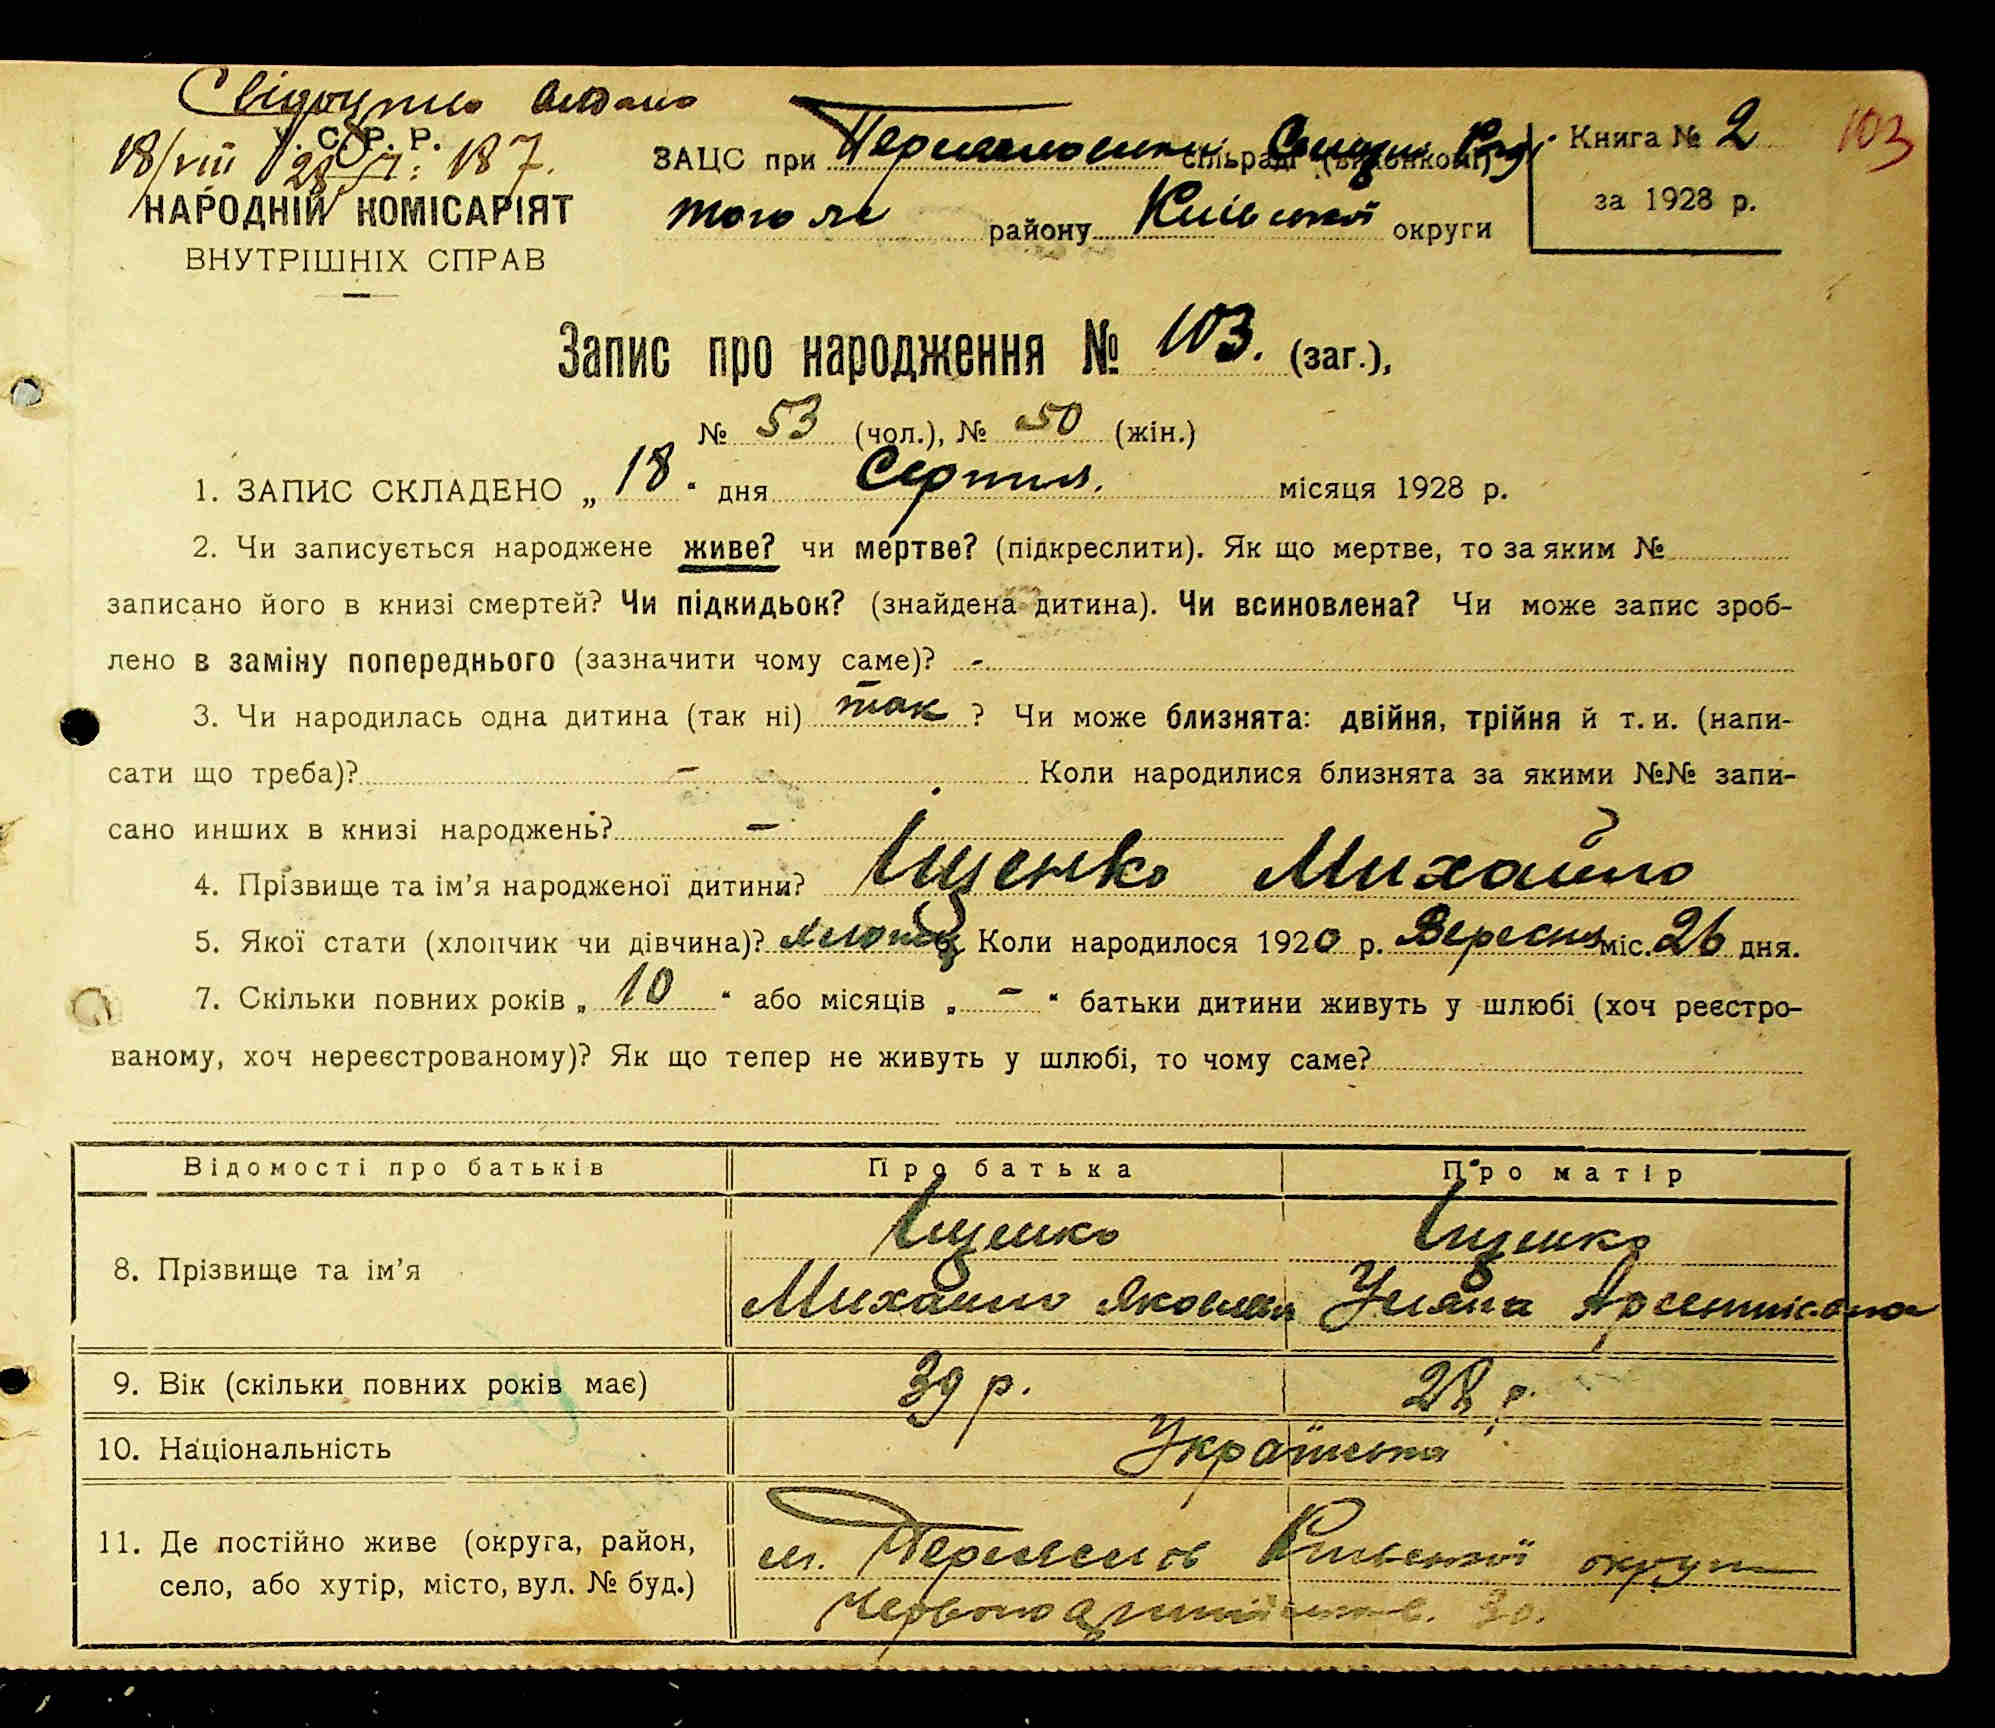 Свідоцтво видано
18/VIII 28 р. 187.
У. С. Р. Р.
НАРОДНІЙ КОМІСАРІЯТ
ВНУТРІШНІХ СПРАВ
ЗАЦС при сільраді (виконкомі)
того ж району Київської округи
Книга № 2
за 1928 р.
103
Запис про народження № 103. (заг.),
№ 53 (чол.), № 50 (жін.)
1. ЗАПИС СКЛАДЕНО „ 18 “ дня Серпня. місяця 1928 р.
2. Чи записується народжене живе? чи мертве? (підкреслити). Як що мертве, то за яким №
записано його в книзі смертей? Чи підкидьок? (знайдена дитина). Чи всиновлена? Чи може запис зроб-
лено в заміну попереднього (зазначити чому саме)? -
3. Чи народилась одна дитина (так ні) так ? Чи може близнята: двійня, трійня й т. и. (напи-
сати що треба)? – Коли народилися близнята за якими №№ запи-
сано инших в книзі народжень? –
4. Прізвище та ім’я народженої дитини? Іщенко Михайло
5. Якої стати (хлопчик чи дівчина)? хлопець Коли народилося 1920 р. Вересня міс. 26 дня.
7. Скільки повних років „ 10 “ або місяців „ – “ батьки дитини живуть у шлюбі (хоч реєстро-
ваному, хоч нереєстрованому)? Як що тепер не живуть у шлюбі, то чому саме?
Відомості про батьків Про батька Про матір
8. Прізвище та ім’я
Іщенко Іщенко
Михайло Яковлев Уляна Арсентіівна
9. Вік (скільки повних років має) 39 р. 28 р.
10. Національність Українська
11. Де постійно живе (округа, район,
село, або хутір, місто, вул. № буд.)
м. Переяслов Київської округи
Червоноармійська в. 30.